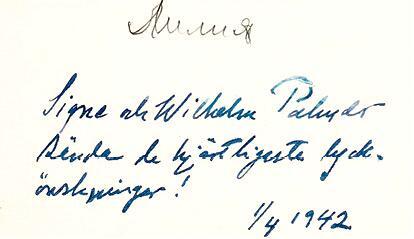 Лилия
Signe och Wilhelm
sända de hjärtligaste lyck-
önskningar!
1/4 1942